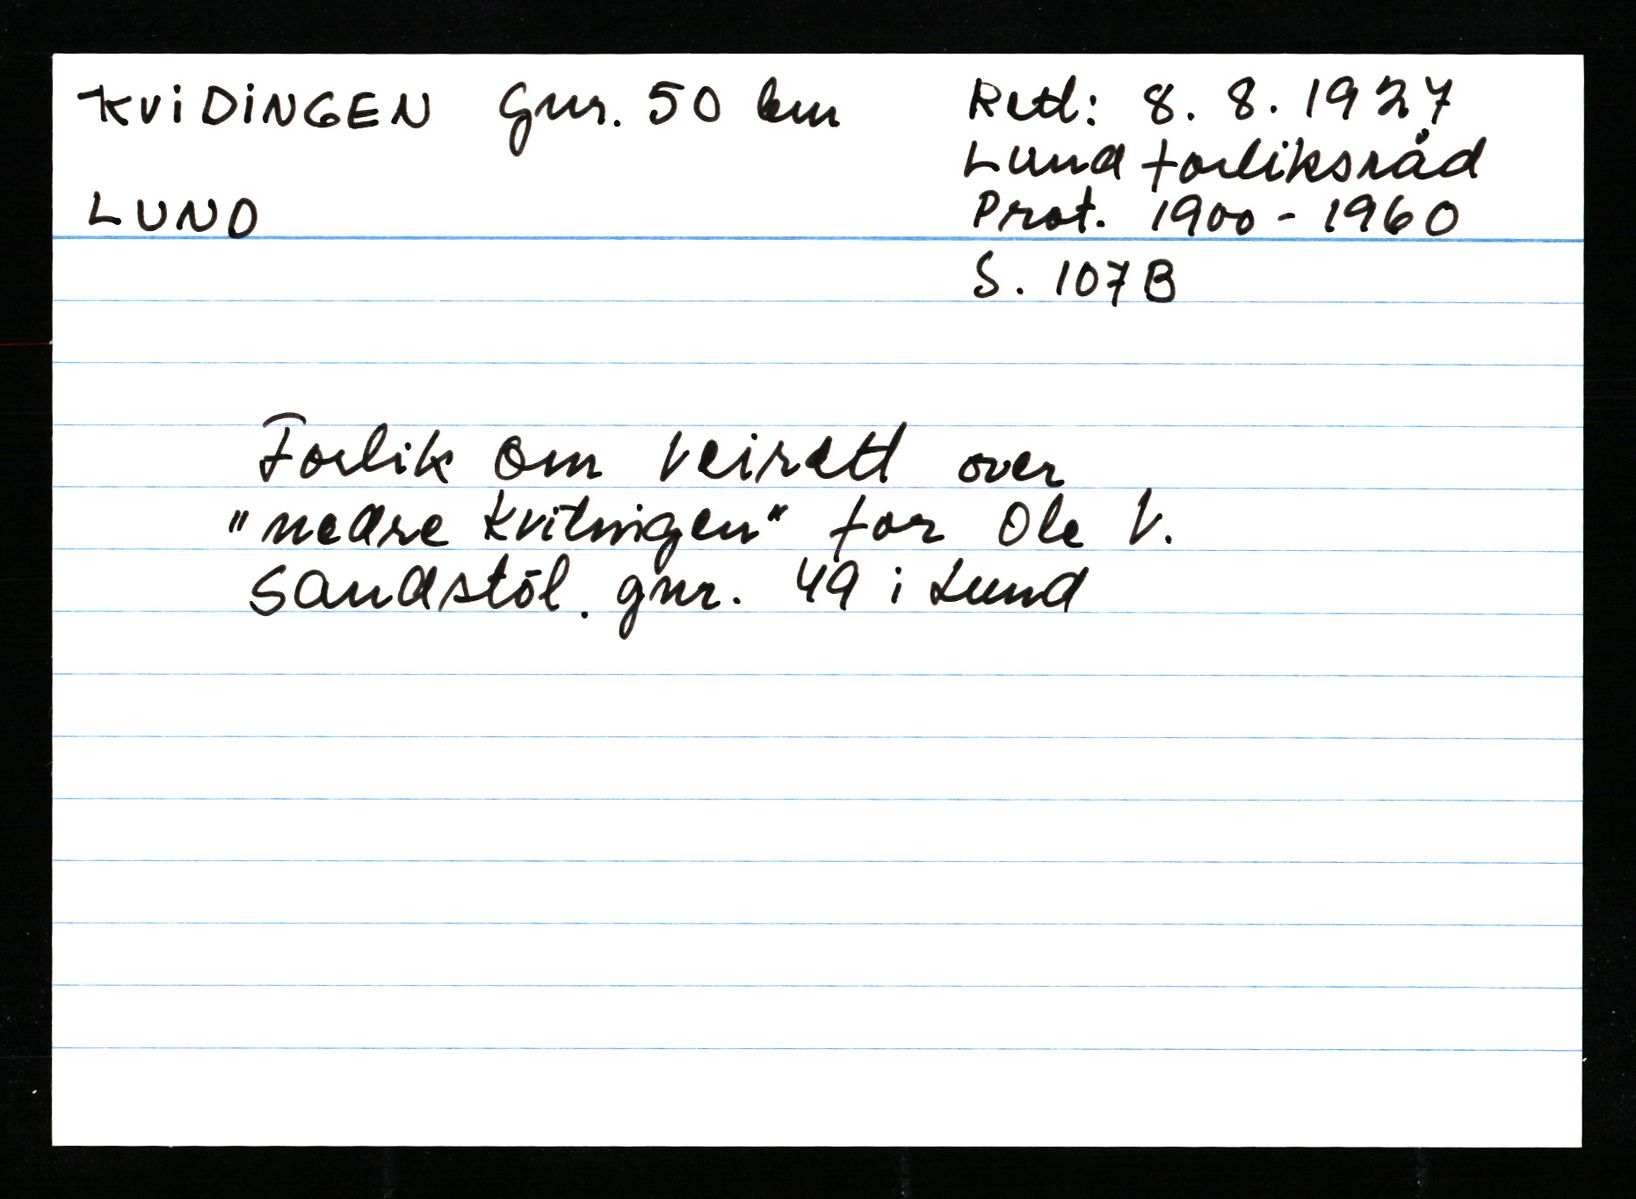 KVIDINGEN Gnr. 50 km
LUND
Rett: 8. 8. 1927
Lund forliksråd
Prot. 1900 - 1960
S. 107 B
Forlik om veirett over
"nedre Kvitingen" for Ole V.
Sandstöl. gnr. 49 i Lund